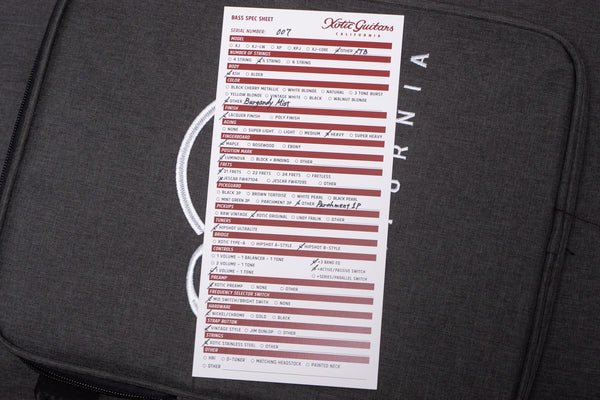 BASS SPEC SHEET
Xotic Guitars
CALIFORNIA
SERIAL NUMBER: 007
MODEL
XJ XJ-1W XP XPJ XJ-CORE OTHER XTB
NUMBER OF STRINGS
4 STRING 5 STRING 6 STRING
BODY
ASH ALDER
COLOR
BLACK CHERRY METALLIC WHITE BLONDE NATURAL 3 TONE BURST
YELLOW BLONDE VINTAGE WHITE BLACK WALNUT BLONDE
OTHER Burgandy Mist
FINISH
LACQUER FINISH POLY FINISH
AGING
NONE SUPER LIGHT LIGHT MEDIUM HEAVY SUPER HEAVY
FINGERBOARD
MAPLE ROSEWOOD EBONY
POSITION MARK
LUMINOVA BLOCK + BINDING OTHER
FRETS
21 FRETS 22 FRETS 24 FRETS FRETLESS
JESCAR FW47104 JESCAR FW47095 OTHER
PICKGUARD
BLACK 3P BROWN TORTOISE WHITE PEARL BLACK PEARL
MINT GREEN 3P PARCHMENT 3P OTHER Parchment 1P
PICKUPS
RAW VINTAGE XOTIC ORIGINAL LINDY FRALIN OTHER
TUNERS
HIPSHOT ULTRALITE
BRIDGE
XOTIC TYPE-A HIPSHOT A-STYLE HIPSHOT B-STYLE
CONTROLS
1 VOLUME - 1 BALANCER - 1 TONE +3 BAND EQ
2 VOLUME - 1 TONE +ACTIVE/PASSIVE SWITCH
1 VOLUME - 1 TONE +SERIES/PARALLEL SWITCH
PREAMP
XOTIC PREAMP NONE OTHER
FREQUENCY SELECTOR SWITCH
MID SWITCH/BRIGHT SWITH NONE
HARDWARE
NICKEL/CHROME GOLD BLACK
STRAP BUTTON
VINTAGE STYLE JIM DUNLOP OTHER
STRINGS
XOTIC STAINLESS STEEL OTHER
OTHER
D-TUNER MATCHING HEADSTOCK PAINTED NECK
OTHER
URNIA